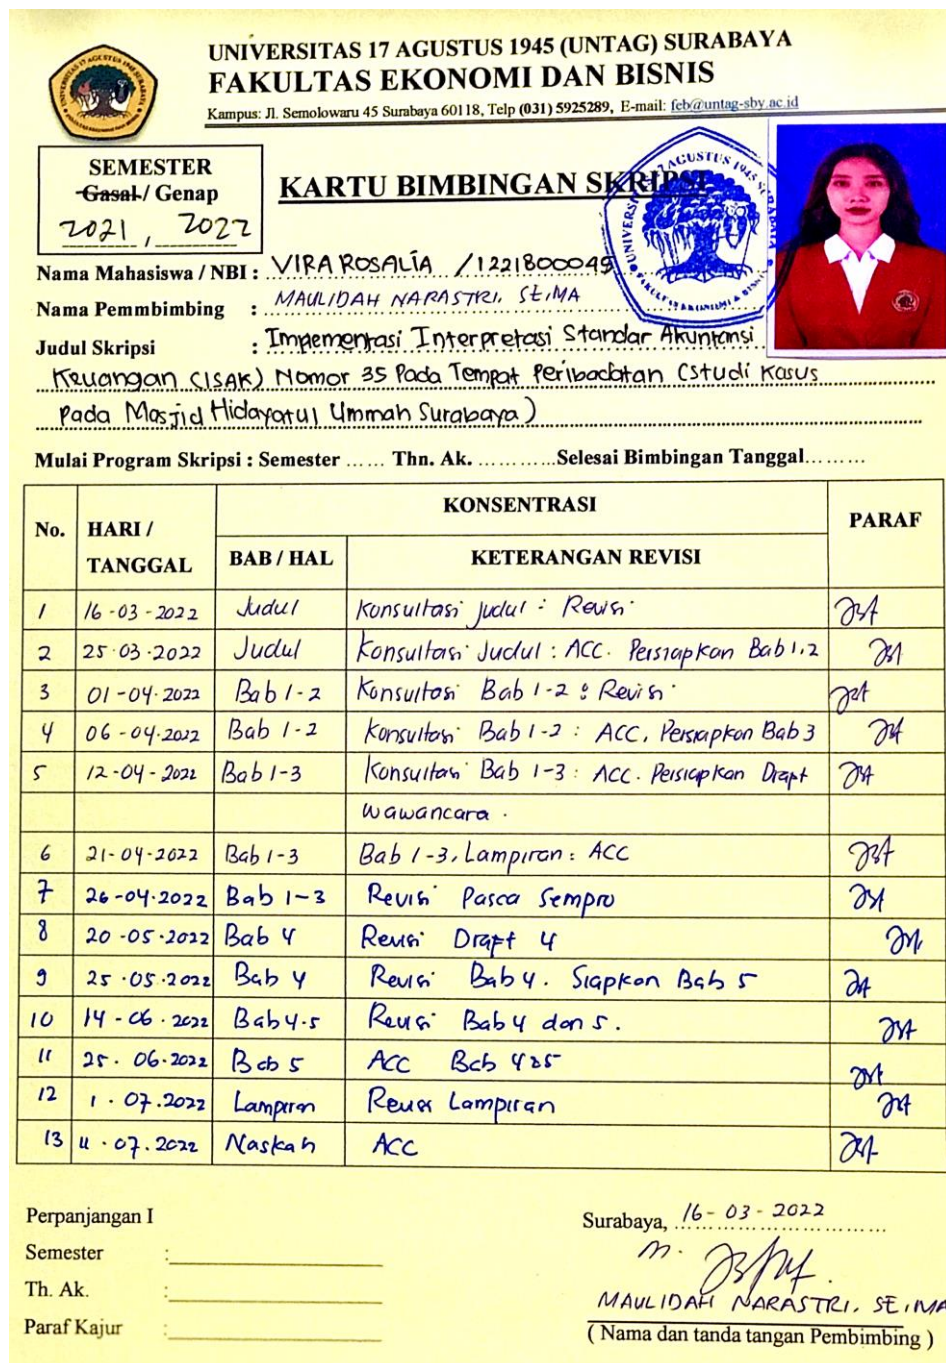 UNIVERSITAS 17 AGUSTUS 1945 (UNTAG) SURABAYA
FAKULTAS EKONOMI DAN BISNIS
Kampus: Jl. Semolowaru 45 Surabaya 60118, Telp (031) 5925289, E-mail: feb@untag-sby.ac.id
SEMESTER
Gasal / Genap
2021, 2022
KARTU BIMBINGAN SKRIPSI
Nama Mahasiswa / NBI : VIRA ROSALIA /1221800045
Nama Pemmbimbing : MAULIDAH NARASTRI, SE, MA
Judul Skripsi : Impementasi Interpretasi Standar Akuntansi
Keuangan (ISAK) Nomor 35 Pada Tempat Peribadatan (Studi Kasus
Pada Masjid Hidayatul Ummah Surabaya)
Mulai Program Skripsi : Semester ...... Thn. Ak. ............Selesai Bimbingan Tanggal.........
No. HARI / TANGGAL KONSENTRASI PARAF
BAB / HAL KETERANGAN REVISI
1 16-03-2022 Judul Konsultasi Judul : Revisi
2 25-03-2022 Judul Konsultasi Judul : ACC. Persiapkan Bab 1,2
3 01-04-2022 Bab 1-2 Konsultasi Bab 1-2 : Revisi
4 06-04-2022 Bab 1-2 Konsultasi Bab 1-2 : ACC, Persiapkan Bab 3
5 12-04-2022 Bab 1-3 Konsultasi Bab 1-3 : ACC. Persiapkan Drapt
wawancara.
6 21-04-2022 Bab 1-3 Bab 1-3, Lampiran : ACC
7 26-04-2022 Bab 1-3 Revisi Pasca Sempro
8 20-05-2022 Bab 4 Revisi Drapt 4
9 25-05-2022 Bab 4 Revisi Bab 4. Siapkan Bab 5
10 14-06-2022 Bab 4-5 Revisi Bab 4 dan 5.
11 25-06-2022 Bab 5 ACC Bab 4&5
12 1-07-2022 Lampiran Revisi Lampiran
13 11-07-2022 Naskah ACC
Perpanjangan I
Semester :
Th. Ak. :
Paraf Kajur :
Surabaya, 16-03-2022
MAULIDAH NARASTRI, SE, MA
( Nama dan tanda tangan Pembimbing )